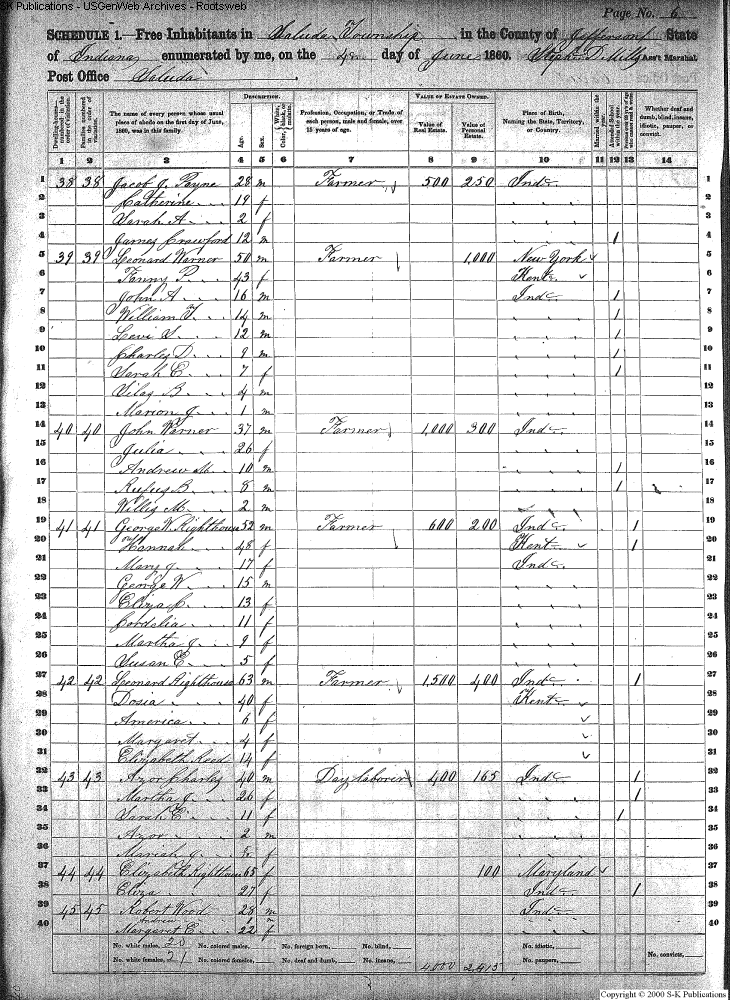 S-K Publications - USGenWeb Archives - Rootsweb
Page No. 6
SCHEDULE 1.—Free Inhabitants in Saluda Township in the County of Jefferson State
of Indiana enumerated by me, on the 4 day of June 1860. Steph. D. Mills Ass't Marshal
Post Office Saluda
Dwelling-houses—numbered in the order of visitation.
Families numbered in the order of visitation.
The name of every person whose usual place of abode on the first day of June, 1860, was in this family.
DESCRIPTION.
Age.
Sex.
Color, White, black, or mulatto.
Profession, Occupation, or Trade of each person, male and female, over 15 years of age.
VALUE OF ESTATE OWNED.
Value of Real Estate.
Value of Personal Estate.
Place of Birth, Naming the State, Territory, or Country.
Married within the year.
Attended School within the year.
Whether deaf and dumb, blind, insane, idiotic, pauper, or convict.
1 2 3 4 5 6 7 8 9 10 11 12 13 14
1 38 38 Jacob J. Payne 28 m Farmer 500 250 Inda. 1
2 Catherine 19 f 2
3 Sarah A. 2 f 3
4 James Crawford 12 m 1 4
5 39 39 Leonard Warner 50 m Farmer 1,000 New York 5
6 Fanny P. 43 f Kent. 6
7 John A. 16 m Inda. 1 7
8 William T. 14 m 1 8
9 Levi S. 12 m 1 9
10 Charles D. 9 m 1 10
11 Sarah E. 7 f 1 11
12 Silas B. 4 m 12
13 Marion J. 1 m 13
14 40 40 John Warner 37 m Farmer 1,000 300 Inda. 14
15 Julia 26 f 15
16 Andrew M. 10 m 1 16
17 Rufus B. 8 m 1 17
18 Willis M. 2 m 18
19 41 41 George W. Righthouse 52 m Farmer 600 200 Inda. 1 19
20 Hannah 48 f Kent. 1 20
21 Mary J. 17 f Inda. 21
22 George W. 15 m 22
23 Eliza C. 13 f 23
24 Cordalia 11 f 24
25 Martha J. 9 f 25
26 Susan E. 5 f 26
27 42 42 Leonard Righthouse 63 m Farmer 1,500 400 Inda. 1 27
28 Dosia 40 f Kent. 28
29 America 6 f 29
30 Margaret 4 f 30
31 Elizabeth Reed 14 f 31
32 43 43 Azor Charles 40 m Day laborer 400 165 Inda. 1 32
33 Martha J. 26 f 1 33
34 Sarah E. 11 f 1 34
35 Azor 2 m 35
36 Mariah J. f 36
37 44 44 Elizabeth Righthouse 65 f 100 Maryland 37
38 Eliza 27 f Inda. 1 38
39 45 45 Robert Wood 28 m Inda. 39
Andrew 1 m
40 Margaret E. 22 f 40
No. white males, 20 No. colored males, No. foreign born, No. blind, No. idiotic,
No. white females, 21 No. colored females, No. deaf and dumb, No. insane, No. paupers, No. convicts,
4000 2415
Copyright © 2000 S-K Publications